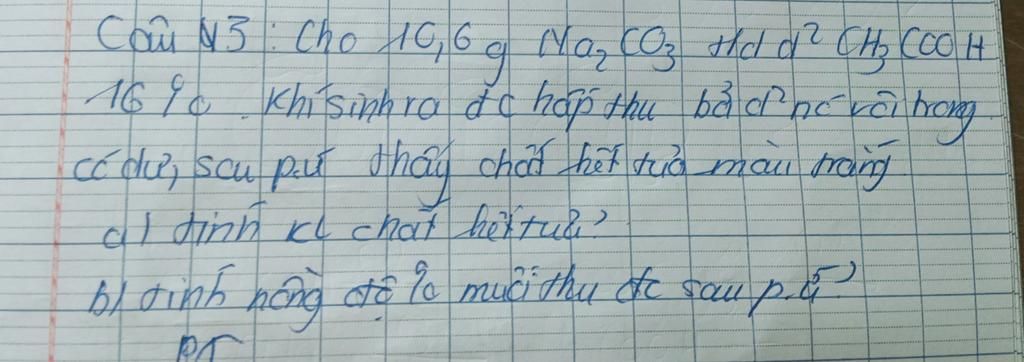 Câu 13: Cho 10,6g Na2CO3 td d² CH3COOH
16% . Khí sinh ra đc hấp thu bởi d² nc vôi trong
có dư, sau p.ứ thấy chất kết tủa màu trắng
a) tính KL chất kết tủa?
b) tính nồng độ % muối thu đc sau p.ứ?
PT